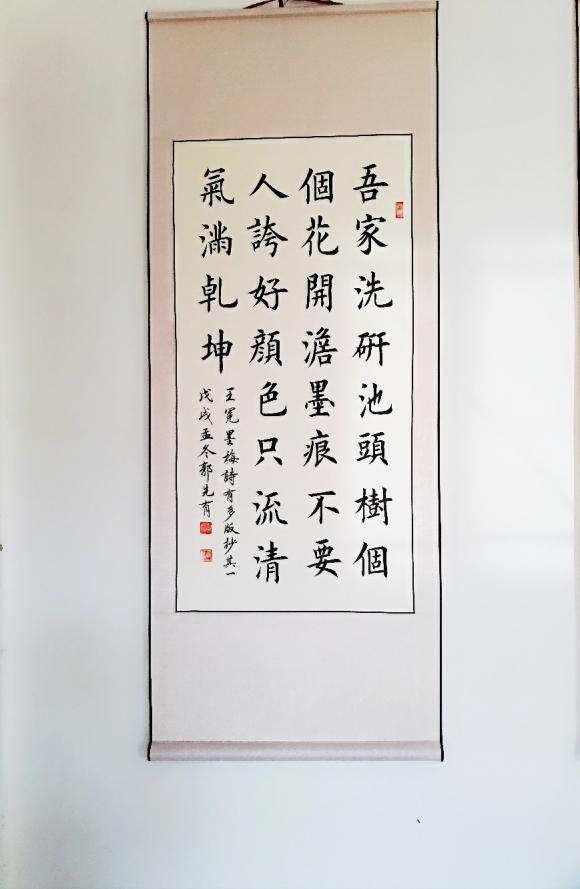 吾家洗研池頭樹個
個花開澹墨痕不要
人誇好顏色只流清
氣滿乾坤
王冕墨梅詩有多版抄其一
戊戌孟冬郭先有